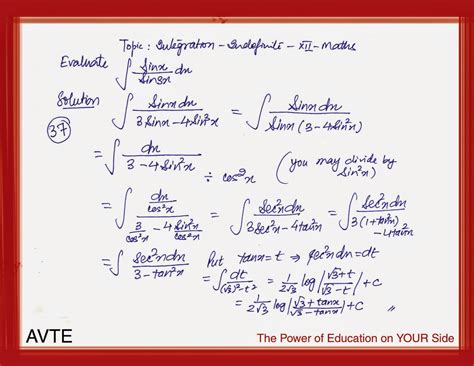 Topic : Integration - Indefinite - XII - Maths
Evaluate ∫ sinx/sin3x dx
Solution ∫ sinx dx / 3 sinx − 4 sin³x = ∫ sinx dx / sinx (3 − 4 sin²x)
37
= ∫ dx / 3 − 4 sin²x ÷ cos²x (you may divide by sin²x)
= ∫ dx/cos²x / 3/cos²x − 4 sin²x/cos²x = ∫ sec²x dx / 3 sec²x − 4 tan²x = ∫ sec²x dx / 3(1+tan²x) − 4 tan²x
= ∫ sec²x dx / 3 − tan²x Put tanx = t ⇒ sec²x dx = dt
= ∫ dt / (√3)² − t² = 1/2√3 log |√3+t / √3−t| + C
= 1/2√3 log |√3 + tanx / √3 − tanx| + C
AVTE
The Power of Education on YOUR Side